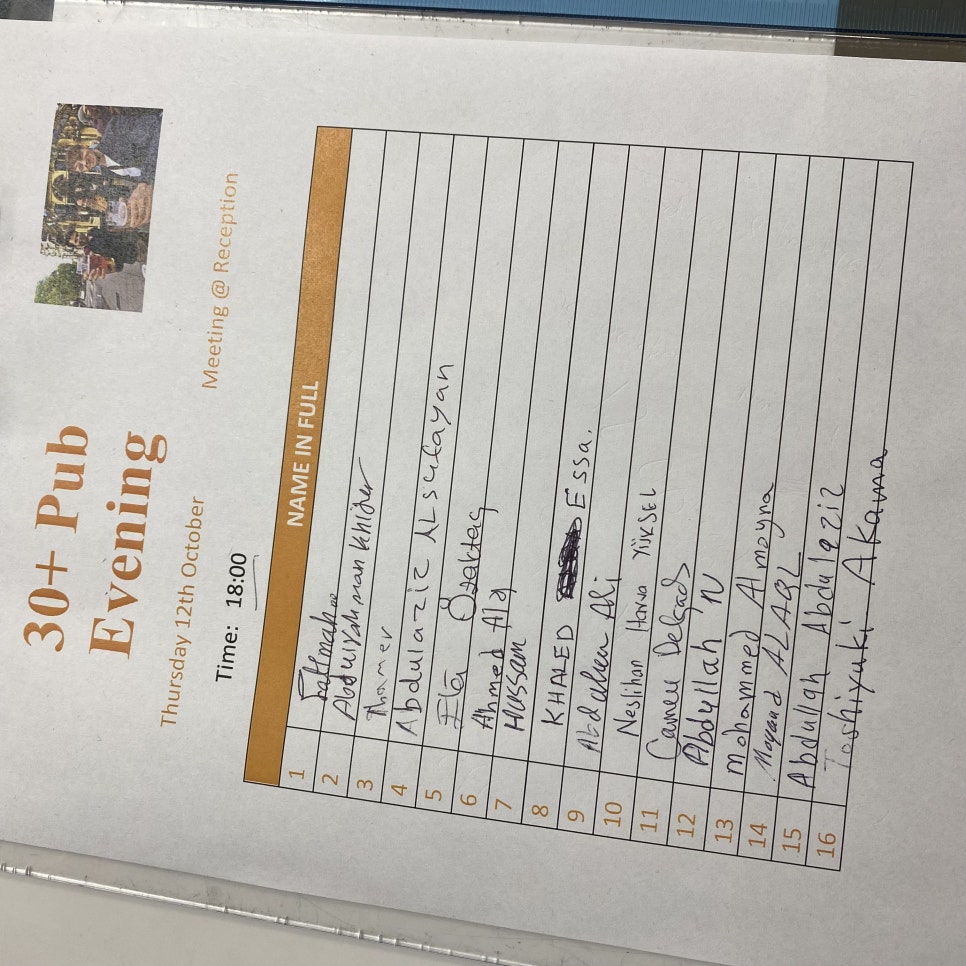 30+ Pub
Evening
Thursday 12th October
Meeting @ Reception
Time: 18:00
NAME IN FULL
1 Fatimah
2 Abdulrahman Khider
3 Thamer
4 Abdulaziz ALsulayan
5 Ela Özaktaç
6 Ahmed Ala
7 Hussam
8 KHALED Essa.
9 Ali
10 Neslihan Havva YÜKSEL
11 Delgado
12 Abdullah N
13 mohammed Almoyna
14 ALAQL
15 Abdullah Abdulaziz
16 Toshiyuki Akama